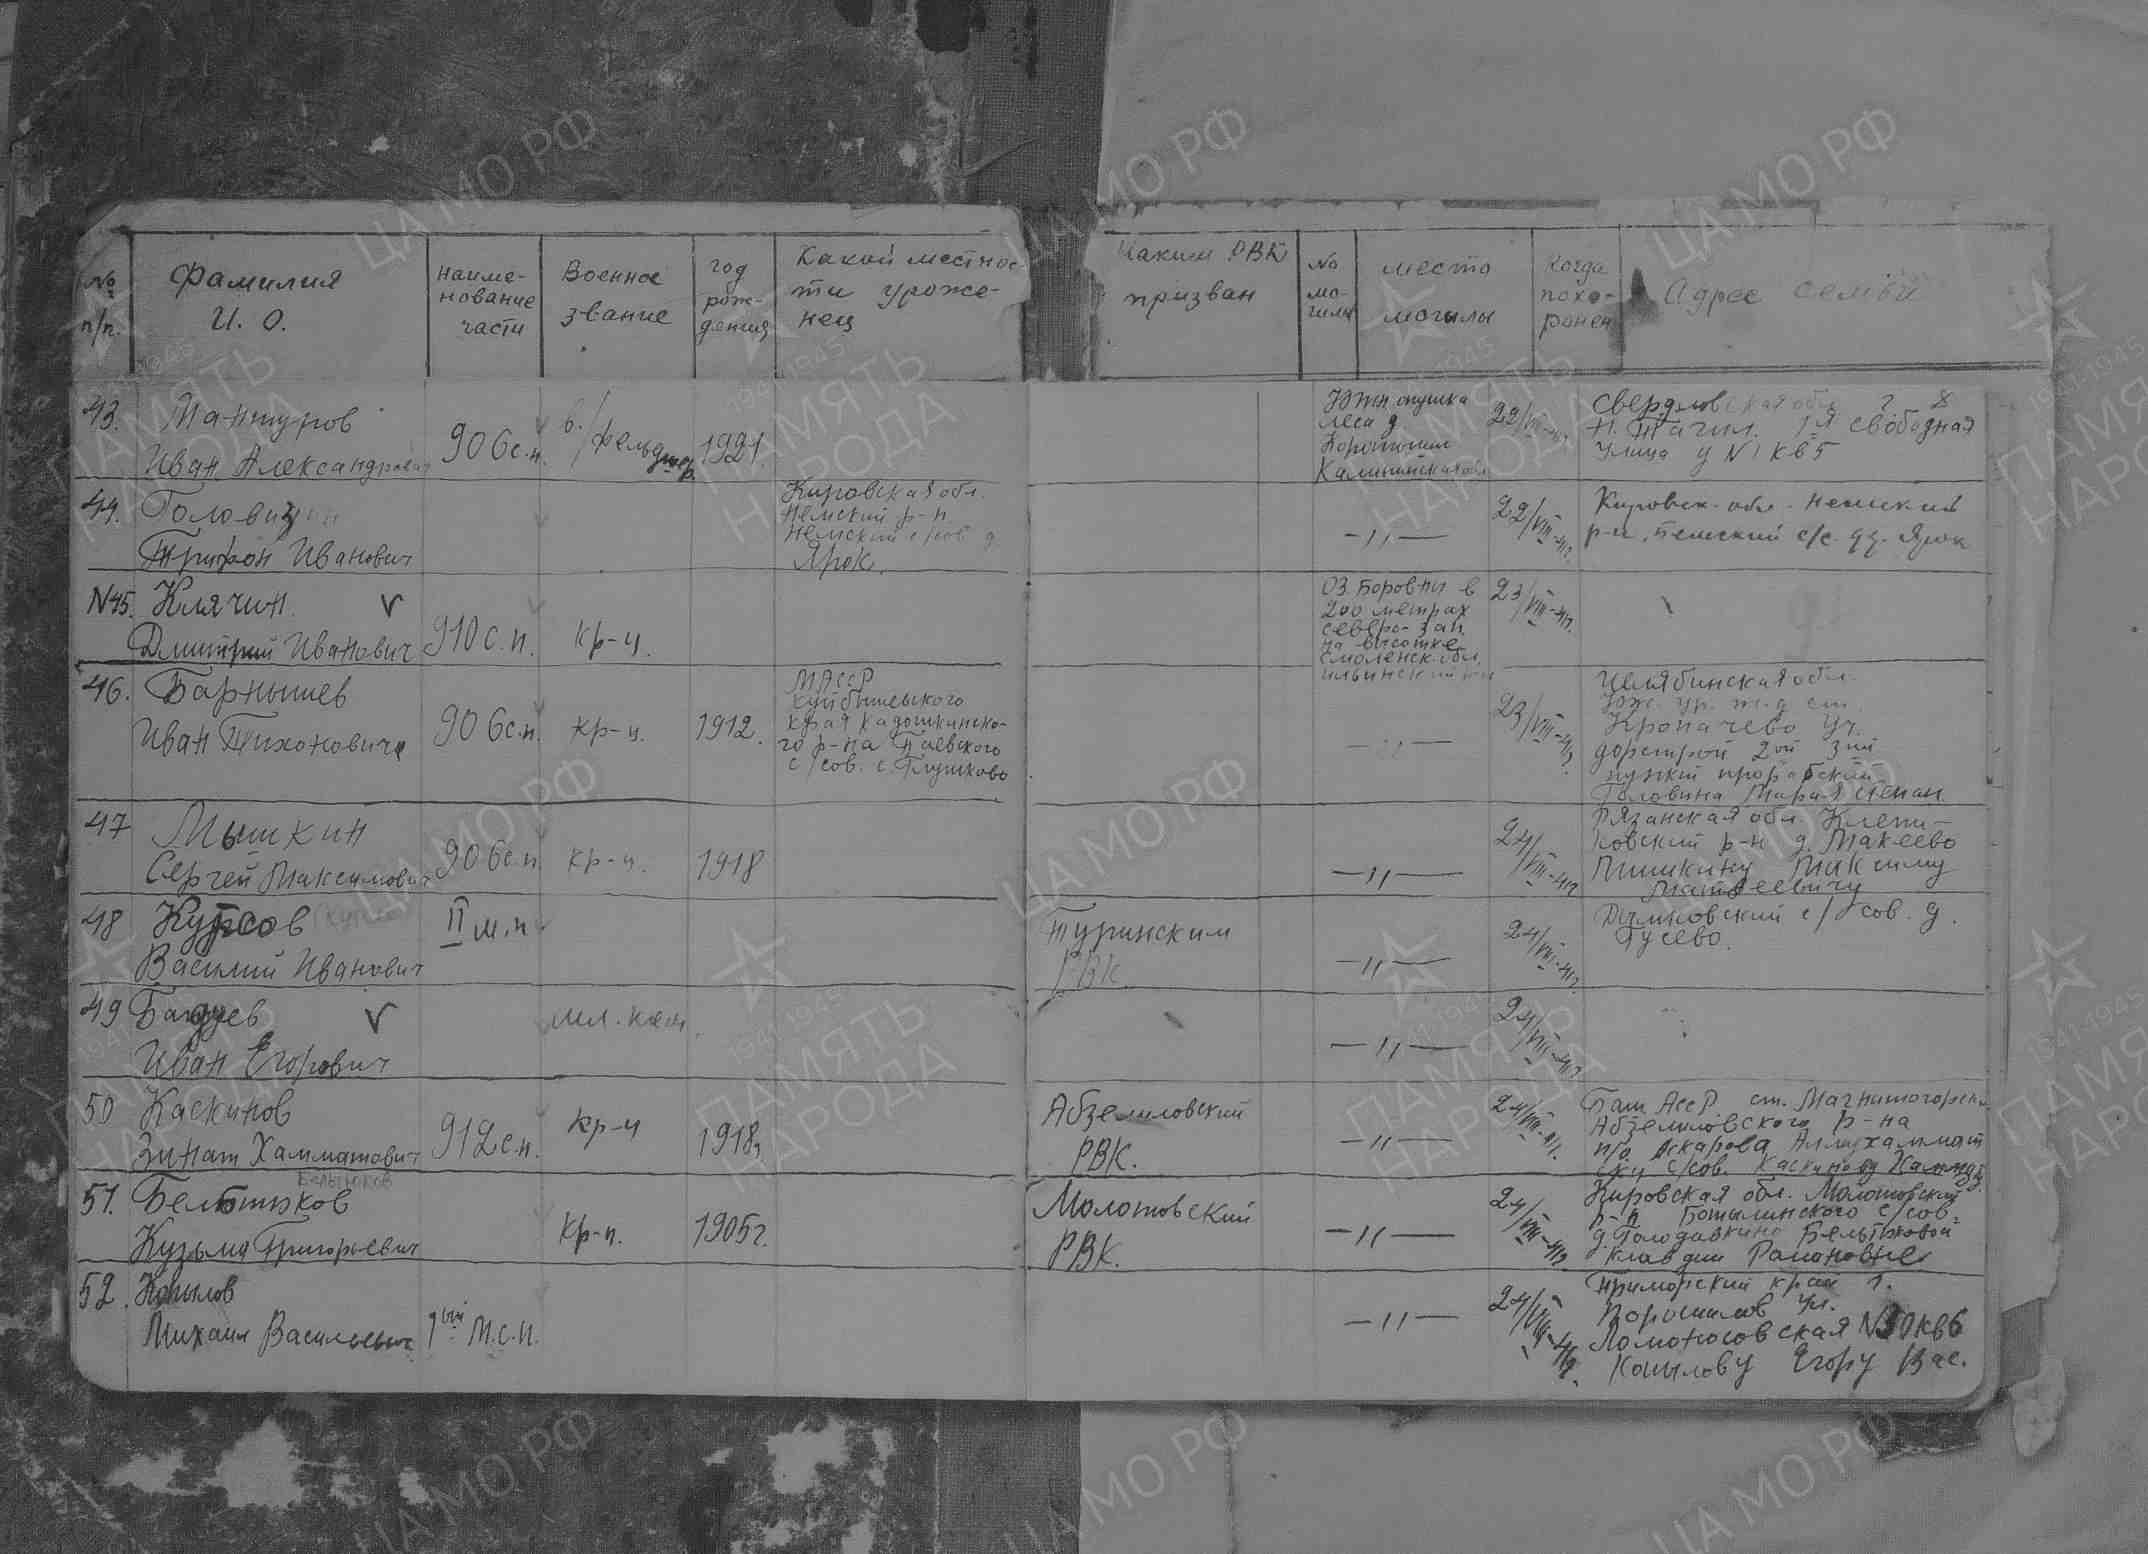 № п/п.
Фамилия И. О.
наиме-
нование
части
Военное
звание
год
рож-
дения
Какой местнос-
ти уроже-
нец
Каким РВК
призван
№
мо-
гилы
место
могилы
когда
похо-
ронен
Адрес семьи
43. Мантуров
Иван Александрович
906с.п.
в./фельдшер.
1921.
Южн. опушка
леса д.
Калининская обл
22/VIII-42г.
Свердловская обл г
Н. Тагил. свободная
улица У№1 кв5
44.
Трифон Иванович
Кировская обл.
Немский р-н
Немский с/сов д
Ярок.
—〃—
22/VIII-42г.
Кировск. обл. Немский
р-н, Немский с/с. Ярок
N45. Клячин.
Дмитрий Иванович
910с.п.
кр-ц.
Оз. Боровны в
200 метрах
северо-зап.
на высотке
Смоленск. обл.
ильинский
23/VIII-42г.
46. Барнышев
Иван Тихоновича
906с.п.
кр-ц.
1912.
МАССР
Куйбышевского
края Кадошкинско-
го р-на Паевского
с/сов. с. Глушково
—〃—
23/VIII-42г.
Челябинская обл.
Юж. ур. ж.д ст.
Кропачево Уч.
дорстрой 2ой 3ий
пункт
Головина Мария Степан
47 Мышкин
Сергей Максимович
906с.п.
кр-ц.
1918
—〃—
24/VIII-42г
Рязанская обл. Клепи-
ковский р-н д. Макеево
Мишкину Максиму
Матвеевичу
48 Курсов
Василий Иванович
II м.п
Туринским
РВК.
—〃—
24/VIII-42г.
с/сов. д.
Гусево.
49
Иван Егорович
мл. ком.
—〃—
24/VIII-42г
50 Каскинов
Зинат Хамматович
912с.п.
кр-ц
1918г
Абзелиловский
РВК.
—〃—
24/VIII-42г.
Баш. АССР ст. Магнитогорск
Абзелиловского р-на
п/о. Аскарова
с/сов. Каскинову
51. Бельтюков
Бельтюков
Кузьма Григорьевич
кр-ц.
1905г.
Молотовский
РВК.
—〃—
24/VIII-42г
Кировская обл. Молотовский
р-н Ботылинского с/сов.
д. Голодавкино Бельтюковой
Клавдии Романовне
52. Копылов
Михаил Васильевич
1ый м.с.п.
—〃—
24/VIII-42г.
Приморский край г.
Ворошилов ул.
Ломоносовская N30кв6
Копылову Егору Вас.
ЦА МО РФ
1941-1945
ПАМЯТЬ
НАРОДА